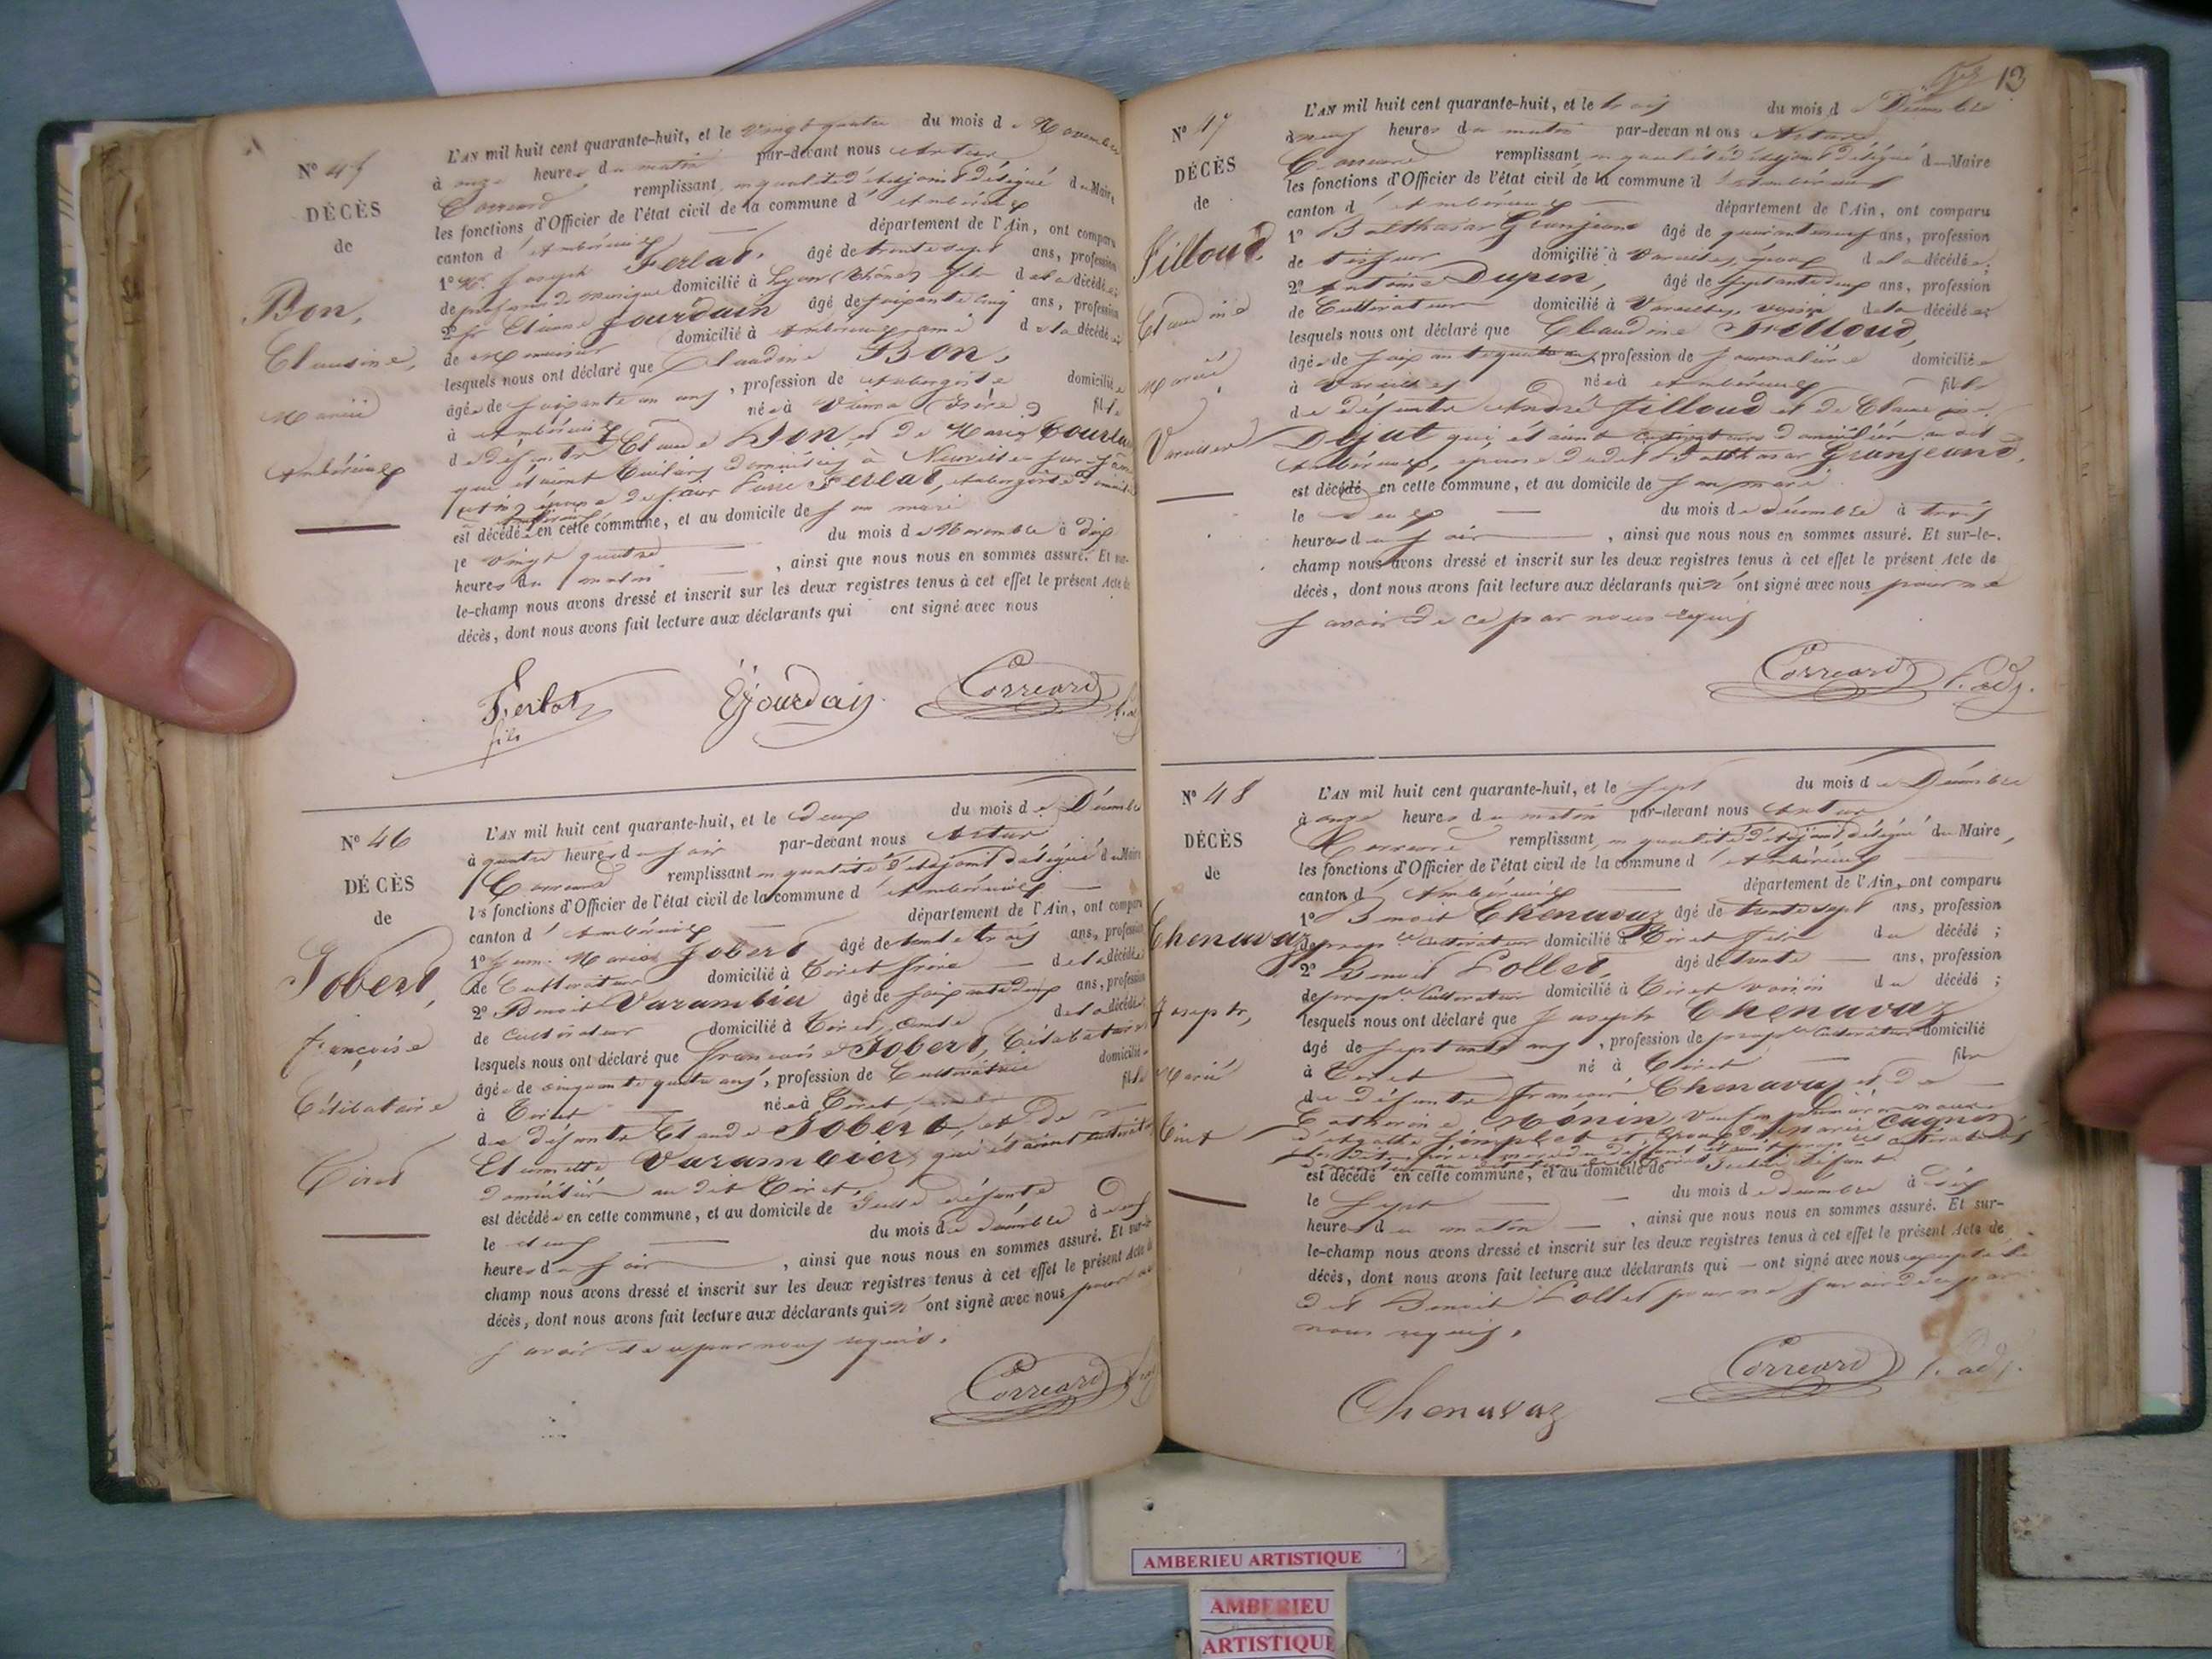 N° 45
DÉCÈS
de
Bon,
Claudine,
Mariée
Ambérieux
L'AN mil huit cent quarante-huit, et le vingt quatre du mois de Novembre
à onze heures du matin par-devant nous Artur
Correard remplissant en qualité d'adjoint délégué du Maire,
les fonctions d'Officier de l'état civil de la commune d'Ambérieux
canton d'Ambérieux département de l'Ain, ont comparu
1° Joseph Ferlat, âgé de trente sept ans, profession
de professeur de musique domicilié à Lyon (Rhône) fils de la décédée;
2° Etienne Jourdain âgé de soixante cinq ans, profession
de domicilié à Ambérieux, ami de la décédée;
lesquels nous ont déclaré que Claudine Bon,
âgée de soixante un ans, profession de Aubergiste domiciliée
à Ambérieux née à Vienne (Isère) fille
de défunts Claude Bon et de Marie
qui étaient domiciliés à Neuville-sur-
épouse de Pierre Ferlat, aubergiste
est décédée en cette commune, et au domicile de son mari
le vingt quatre du mois de Novembre à dix
heures du matin, ainsi que nous nous en sommes assuré. Et sur-
le-champ nous avons dressé et inscrit sur les deux registres tenus à cet effet le présent Acte de
décès, dont nous avons fait lecture aux déclarants qui ont signé avec nous
Ferlat
fils
EJourdain
Correard
N° 46
DÉCÈS
de
Jobert,
françoise
Célibataire
Tiret
L'AN mil huit cent quarante-huit, et le deux du mois de Décembre
à quatre heures du soir par-devant nous Artur
Correard remplissant en qualité d'adjoint délégué du Maire
les fonctions d'Officier de l'état civil de la commune d'Ambérieux
canton d'Ambérieux département de l'Ain, ont comparu
1° Marie Jobert âgé de trente trois ans, profession
de Cultivateur domicilié à Tiret frère de la décédée
2° Benoit Varambier âgé de soixante deux ans, profession
de cultivateur domicilié à Tiret, de la décédée;
lesquels nous ont déclaré que françoise Jobert, Célibataire
âgée de cinquante quatre ans, profession de Cultivatrice domiciliée
à Tiret née à Tiret fille
de défunts Claude Jobert, et de
Etiennette Varambier qui étaient cultivateurs
domiciliés au dit Tiret,
est décédée en cette commune, et au domicile de ladite défunte
le deux du mois de décembre à deux
heures du soir, ainsi que nous nous en sommes assuré. Et sur-le-
champ nous avons dressé et inscrit sur les deux registres tenus à cet effet le présent Acte de
décès, dont nous avons fait lecture aux déclarants qui n'ont signé avec nous pour ne
savoir de ce par nous requis.
Correard
13
N° 47
DÉCÈS
de
Filloud,
Claudine
Mariée
Vareilles
L'AN mil huit cent quarante-huit, et le trois du mois de Décembre
à neuf heures du matin par-devan nt ous Artur
Correard remplissant en qualité d'adjoint délégué d Maire
les fonctions d'Officier de l'état civil de la commune d'Ambérieux
canton d'Ambérieux département de l'Ain, ont comparu
1° Balthazar Granjeand âgé de quarante neuf ans, profession
de tisseur domicilié à Vareilles, époux de la décédée;
2° Antoine Dupin, âgé de septante deux ans, profession
de Cultivateur domicilié à Vareilles, voisin de la décédée;
lesquels nous ont déclaré que Claudine Filloud,
âgée de soixante quatre ans, profession de journalière domiciliée
à Vareilles née à Ambérieux fille
de défunts André Filloud et de Claudine
Dejut qui étaient cultivateurs domiciliés au dit
Ambérieux, épouse dudit Balthazar Granjeand,
est décédé en cette commune, et au domicile de son mari
le deux du mois de décembre à trois
heures du soir, ainsi que nous nous en sommes assuré. Et sur-le-
champ nous avons dressé et inscrit sur les deux registres tenus à cet effet le présent Acte de
décès, dont nous avons fait lecture aux déclarants qui n'ont signé avec nous pour ne
savoir de ce par nous requis
Correard l. adj.
N° 48
DÉCÈS
de
Chenavaz
Joseph,
Marié
Tiret
L'AN mil huit cent quarante-huit, et le sept du mois de Décembre
à onze heures du matin par-devant nous Artur
Correard remplissant en qualité d'adjoint délégué du Maire,
les fonctions d'Officier de l'état civil de la commune d'Ambérieux
canton d'Ambérieux département de l'Ain, ont comparu
1° Benoit Chenavaz âgé de trente sept ans, profession
de prop.re Cultivateur domicilié à Tiret fils du décédé;
2° Benoit Follet, âgé de trente ans, profession
de prop.re Cultivateur domicilié à Tiret voisin du décédé;
lesquels nous ont déclaré que Joseph Chenavaz
âgé de septante ans, profession de prop.re Cultivateur domicilié
à Tiret né à Tiret fils
de défunts françois Chenavaz et de
Catherine Monin, veuf en
et époux de Marie Cagnon
est décédé en cette commune, et au domicile de
le sept du mois de décembre à six
heures du matin, ainsi que nous nous en sommes assuré. Et sur-
le-champ nous avons dressé et inscrit sur les deux registres tenus à cet effet le présent Acte de
décès, dont nous avons fait lecture aux déclarants qui ont signé avec nous excepté le
dit Benoit Follet pour ne savoir de ce par
nous requis.
Chenavaz
Correard l. adj.
AMBERIEU ARTISTIQUE
AMBERIEU
ARTISTIQUE